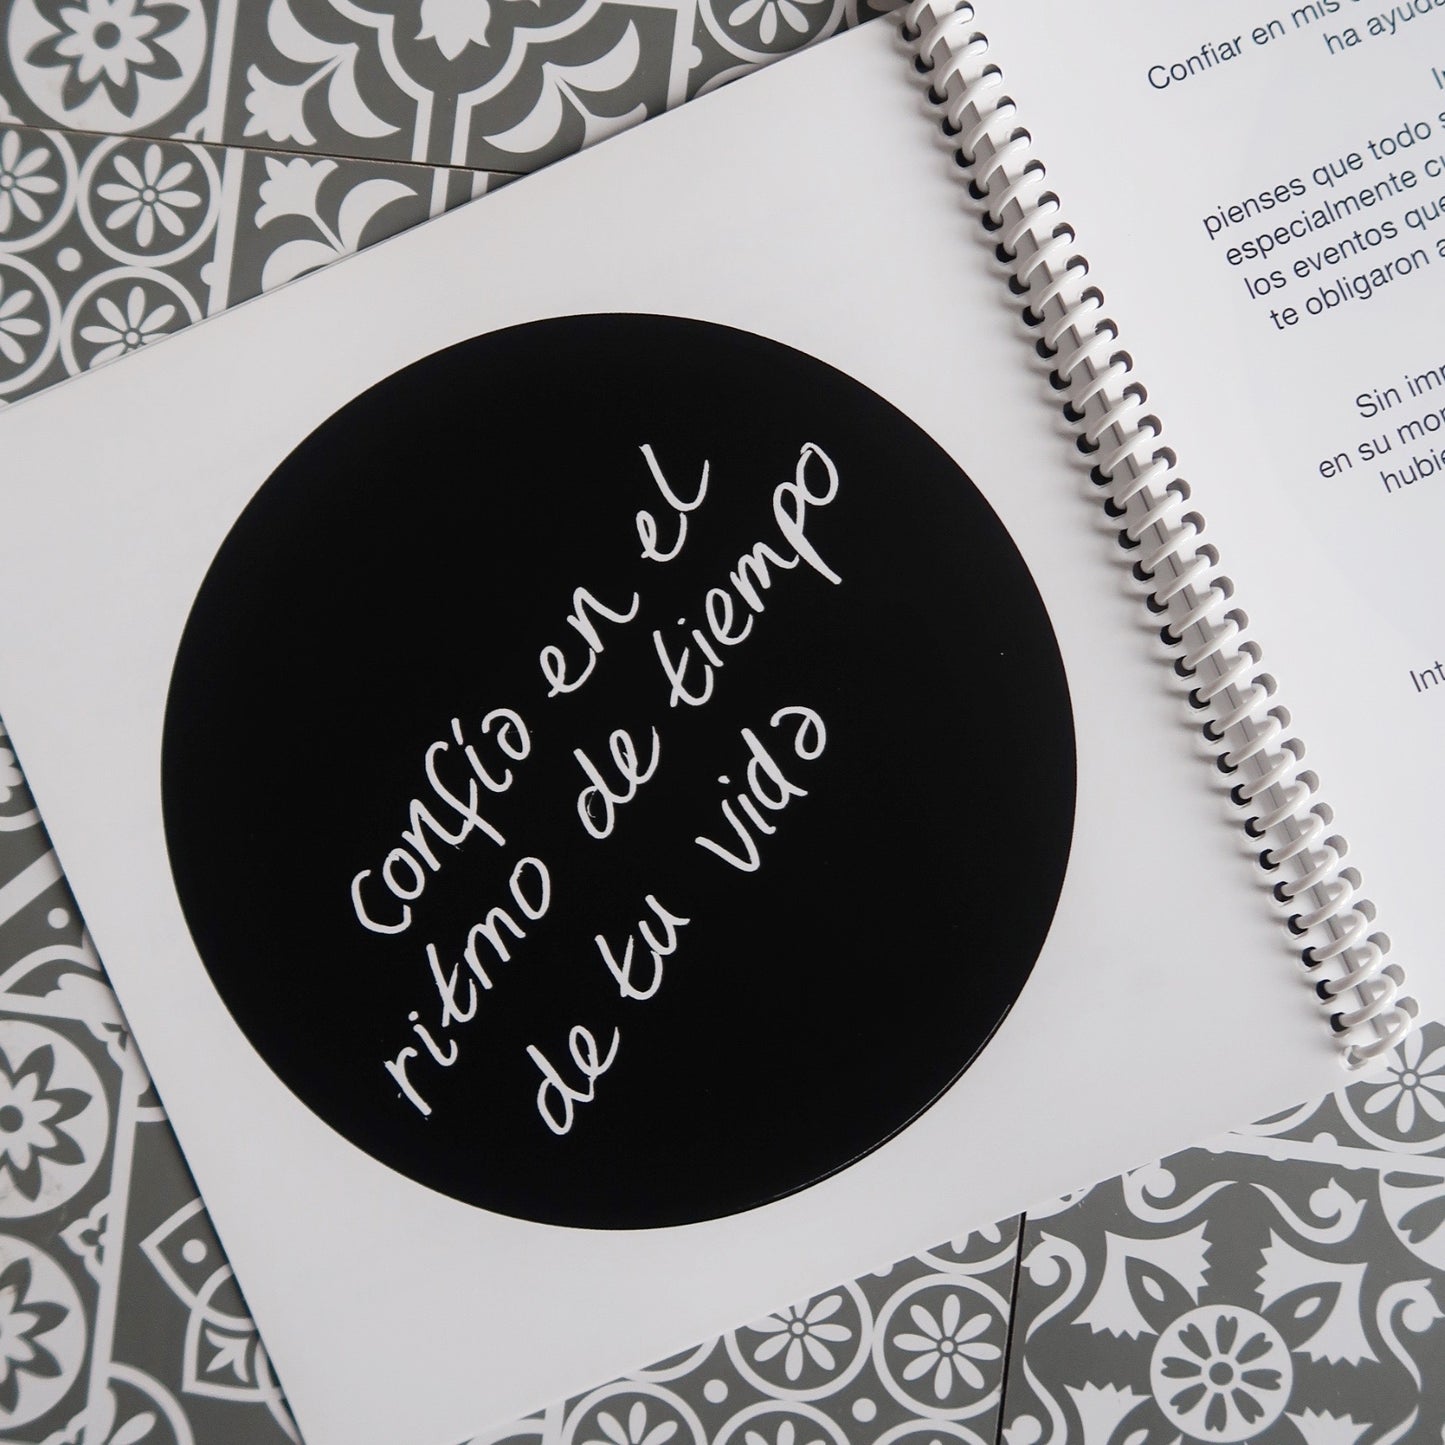 confía en el
ritmo de tiempo
de tu vida
Confiar en mis
ha ayuda
pienses que todo
especialmente
los eventos que
te obligaron a
Sin
en su